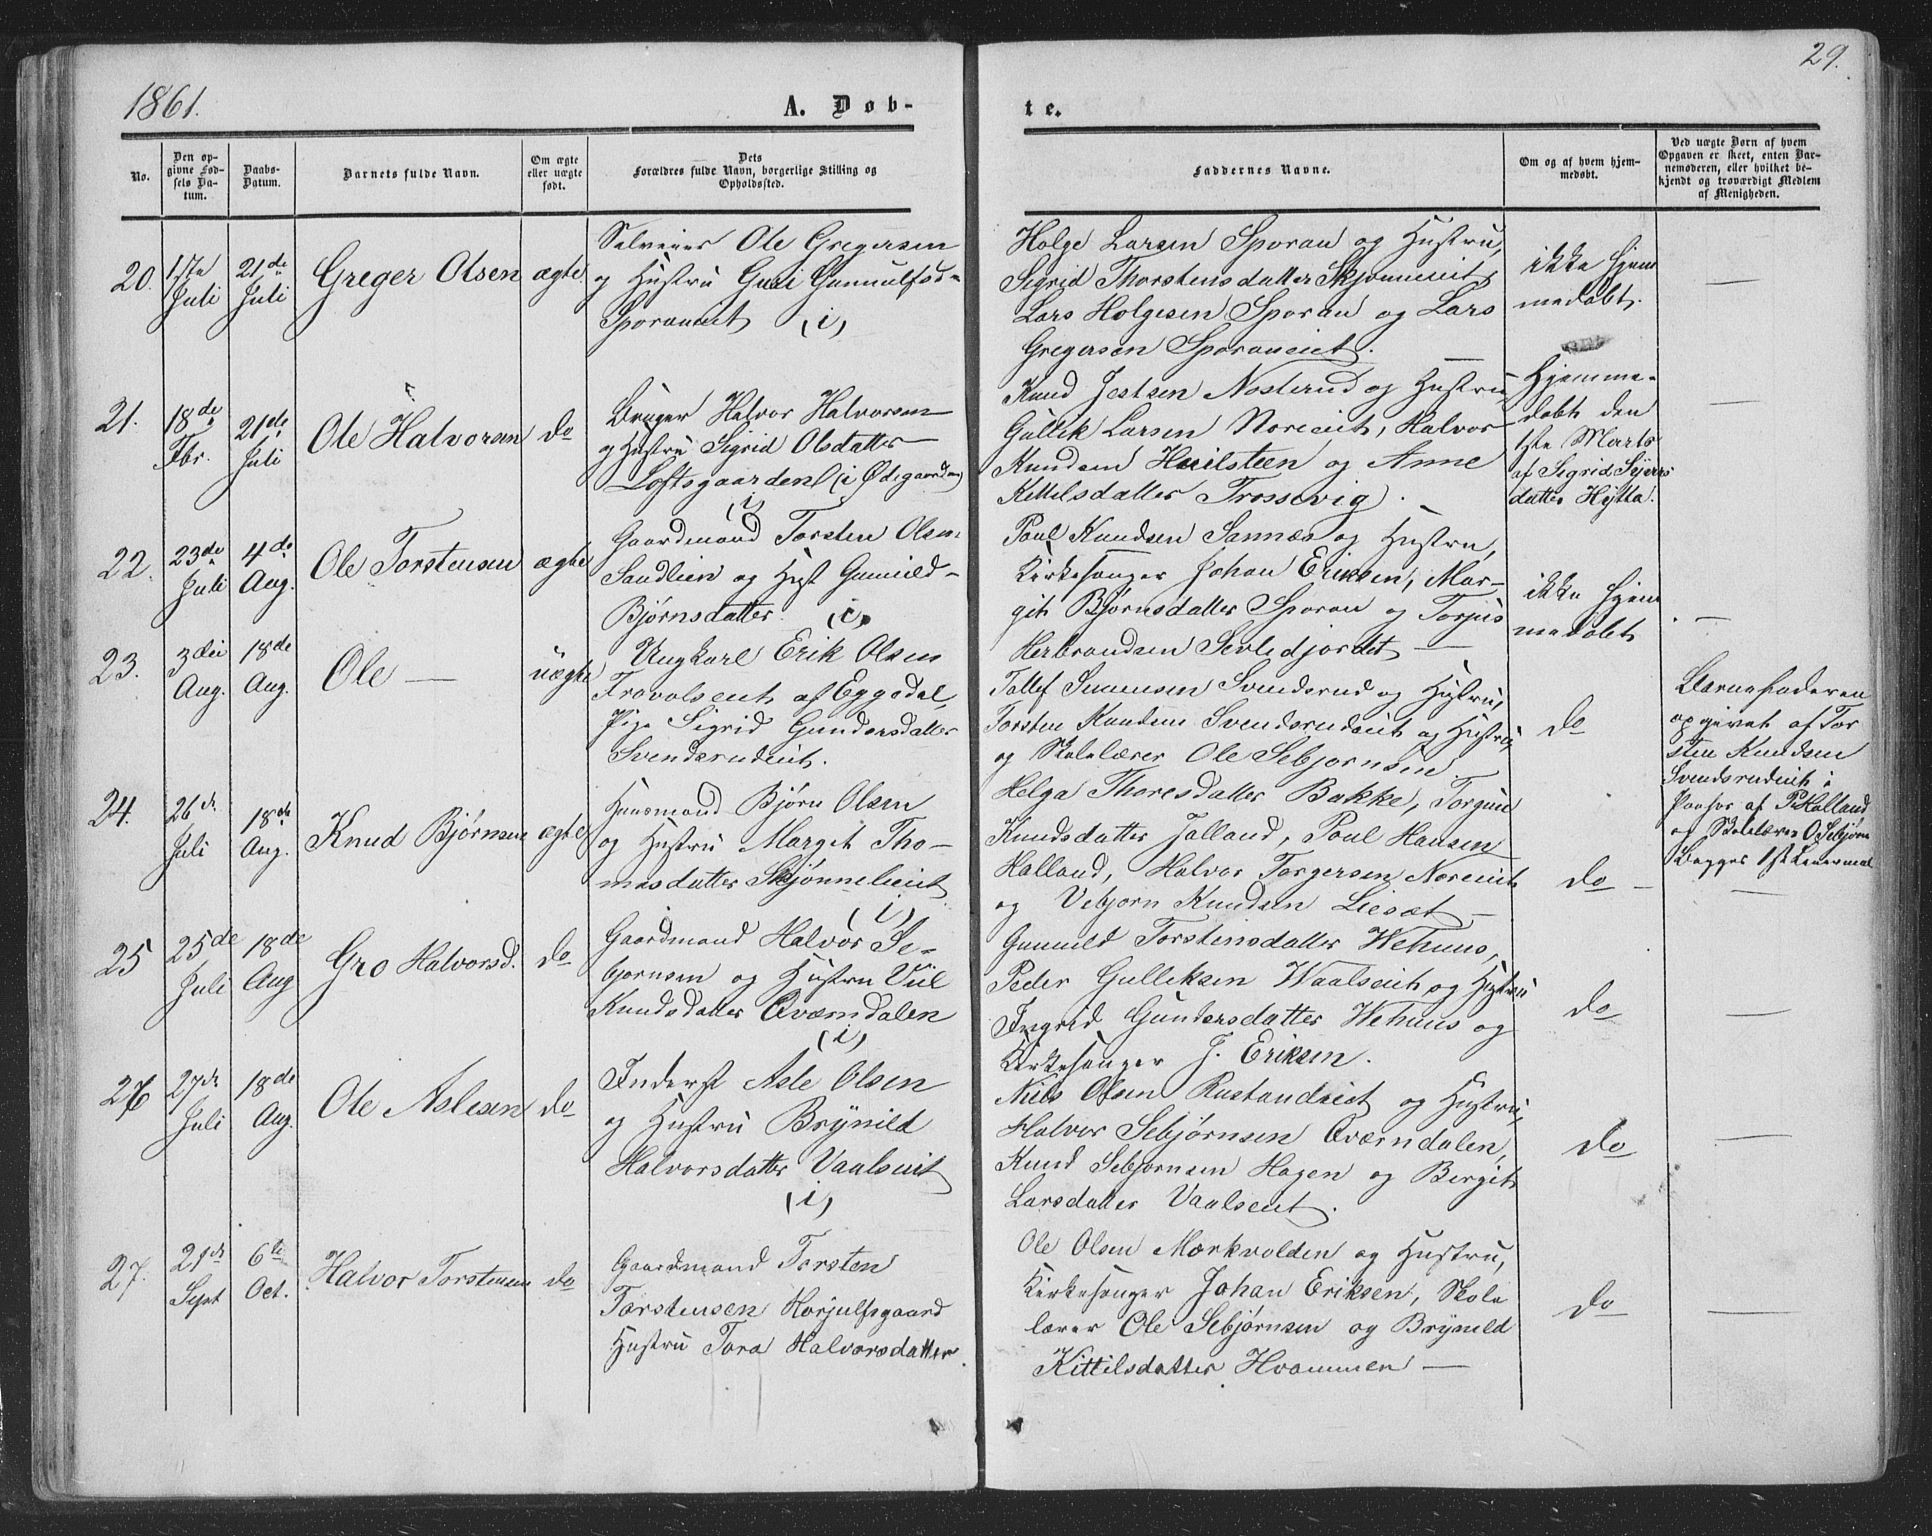 1861.
A. Døb-
te.
29.
No.
Den op-
givne Fød-
sels Da-
tum.
Daabs-
Datum.
Barnets fulde Navn.
Om ægte
eller uægte
født.
Dets
Forældres fulde Navn, borgerlige Stilling og
Opholdssted.
Faddernes Navne.
Om og af hvem hjem-
medøbt.
Ved uægte Børn af hvem
Opgaven er skeet, enten Bar-
nemoderen, eller hvilket be-
kjendt og troværdigt Medlem
af Menigheden.
20.
17de
Juli
21de
Juli
Greger Olsen
ægte
Selveier Ole Gregersen
og Hustru Guri Gunnulfsd-
Sporaneiet (i)
Holge Larsen Sporan og Hustru,
Sigrid Thorstensdatter Skjønneeiet,
Lars Holgesen Sporan og Lars
Gregersen Sporaneiet.
ikke hjem
medøbt.
—
21.
18de
Fbr.
21de
Juli
Ole Halvorsen
do
Bruger Halvor Halvorsen
og Hustru Sigrid Olsdatter
Loftsgaarden (i Ødegaarden)
(i)
Knud Jestsen Nosterud og Hustru,
Gullik Larsen Noreeiet, Halvor
Knudsen Heilsteen og Anne
Kettelsdatter Trossevig.
Hjemme-
døbt den
1ste Marts
af Sigrid
datter Hytta.
—
22.
23de
Juli
4de
Aug.
Ole Torstensen
ægte
Gaardmand Torsten Olsen
Sandlien og Hust Gunnild-
Bjørnsdatter. (i)
Poul Knudsen Sannæs og Hustru,
Kirkesanger Johan Eriksen, Mar-
git Bjørnsdatter Sporan og Torjus
Herbrandsen Sevledjordet —
ikke hjem
medøbt
—
23.
3die
Aug.
18de
Aug.
Ole —
uægte
Ungkarl Erik Olsen
Frovolseiet af Eggedal,
Pige Sigrid Gundersdatter
Svendsrudeiet.
Tollef Svensen Svendsrud og Hustru,
Torsten Knudsen Svendsrudeiet og Hustru
og Skolelærer Ole Sebjornsen.
do
Barnefaderen
opgivet af Tor
sten Knudsen
Svendsrudeiet i
Paahør af P. Halland
og Skolelærer O. Sebjørn
Begges 1ste Leiermaal
24.
26de
Juli
18de
Aug.
Knud Bjørnsen
ægte
Huusmand Bjørn Olsen
og Hustru Marget Tho-
masdatter Skjønneeiet
(i)
Helga Thoresdatter Bakke, Torgun
Knudsdatter Jolland, Poul Hansen
Halland, Halvor Torgersen Noreeiet
og Vebjorn Knudsen Liesæt —
do
—
25
25de
Juli
18de
Aug
Gro Halvorsd.
do
Gaardmand Halvor Se-
bjornsen og Hustru Viel
Knudsdatter Qværndalen
(i)
Gunnild Torstensdatter Wehuus,
Peder Gulleksen Waalseiet og Hustru
Ingrid Gundersdatter Wehuus og
Kirkesanger J. Eriksen.
do
—
26
27de
Juli
18de
Aug.
Ole Aslesen
do
Inderst Asle Olsen
og Hustru Brynild
Halvorsdatter Vaalseiet
(i)
Niels Olsen Rustandeiet og Hustru,
Halvor Sebjørnsen Qværndalen,
Knud Sebjornsen Hagen og Bergit
Larsdatter Vaalseiet.
do
—
27.
21de
Sept
6te
Oct.
Halvor Torstensen
do
Gaardmand Torsten
Torstensen Horjulfsgaard
Hustru Tora Halvorsdatter.
Ole Olsen Morkvolden og Hustru,
Kirkesanger Johan Eriksen, Skole
lærer Ole Sebjørnsen og Brynild
Kittilsdatter Hvammen —
do
—